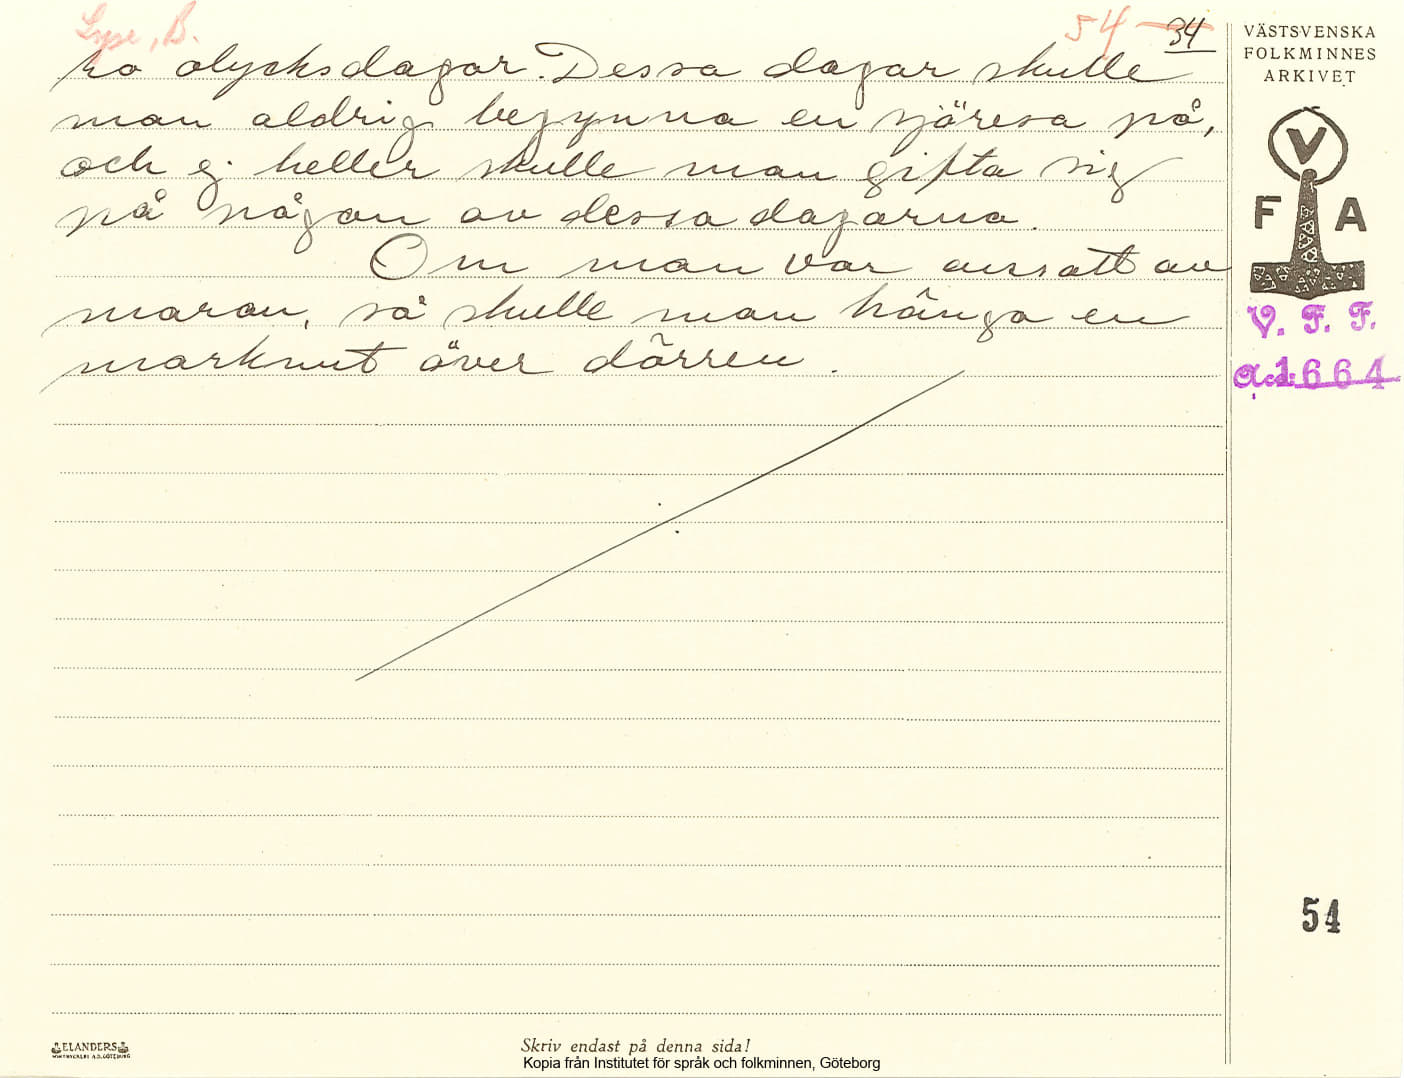 Lyse, B.
54 34
ro olycksdagar. Dessa dagar skulle
man aldrig begynna en sjöresa på,
och ej heller skulle man gifta sig
på någon av dessa dagarna.
Om man var ansatt av
maran, så skulle man hänga en
marknut över dörren.
VÄSTSVENSKA
FOLKMINNES
ARKIVET
V
F A
V. F. F.
Acc: 1664
54
ELANDERS
Skriv endast på denna sida!
Kopia från Institutet för språk och folkminnen, Göteborg